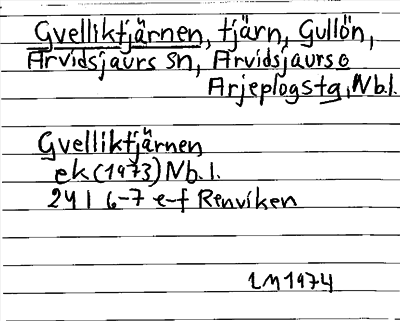 Gvelliktjärnen, tjärn, Gullön,
Arvidsjaurs sn, Arvidsjaurs o
Arjeplogs tg, Nb.l.
Gvelliktjärnen
ek (1973) Nb.l.
24 I 6-7 e-f Renviken
LM 1974